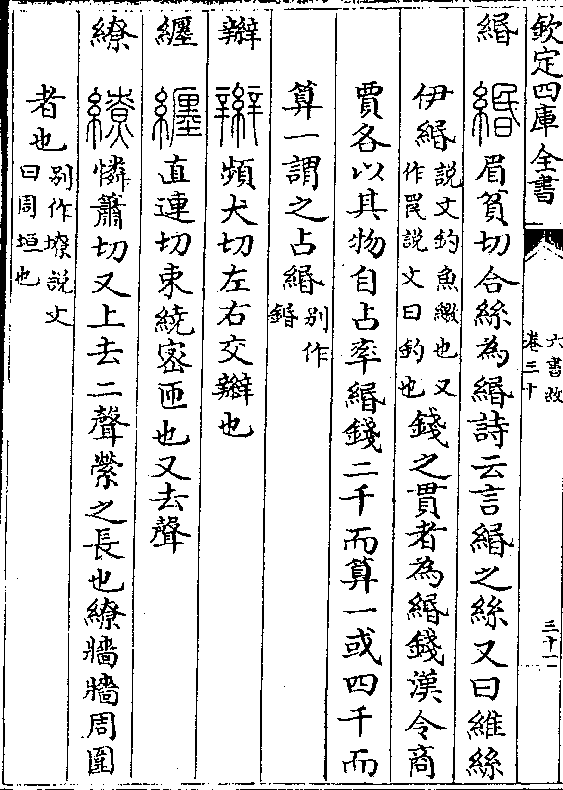 欽定四庫全書
六書故
卷三十
三十一
緡 緡 眉貧切合絲為緡詩云言緡之絲又曰維絲
伊緡 說文釣魚繳也又
作罠說文曰釣也 錢之貫者為緡錢漢令商
賈各以其物自占率緡錢二千而算一或四千而
算一謂之占緡 別作
鍲
辮 辮 頻犬切左右交辮也
纒 纒 直連切束繞宻匝也又去聲
繚 繚 憐蕭切又上去二聲縈之長也繚牆牆周圍
者也 別作㙩說文
曰周垣也